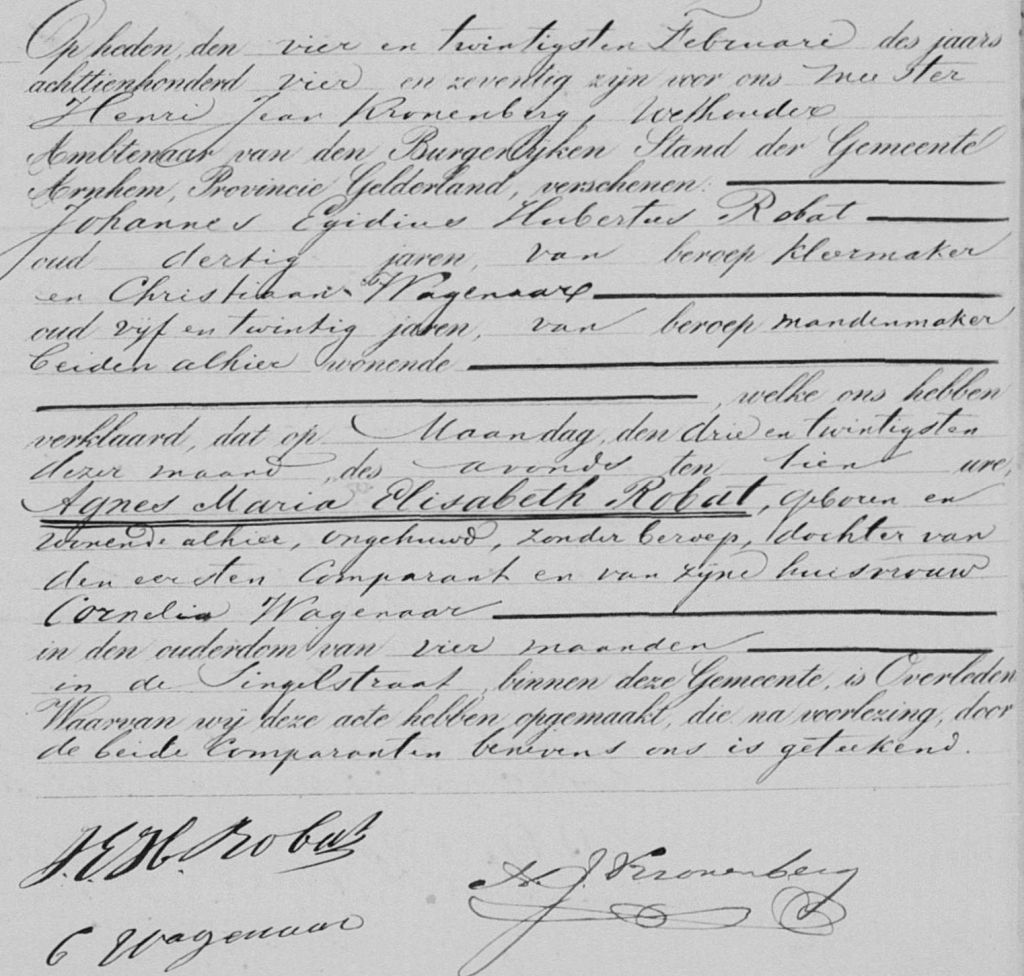 Op heden, den vier en twintigsten Februari des jaars
achttienhonderd vier en zeventig zijn voor ons meester
Henri Jean Kronenberg, Wethouder
Ambtenaar van den Burgerlyken Stand der Gemeente
Arnhem, Provincie Gelderland, verschenen:
Johannes Egidius Hubertus Robat
oud dertig jaren, van beroep kleermaker
en Christiaan Wagenaar
oud vijf en twintig jaren, van beroep mandenmaker
beiden alhier wonende
, welke ons hebben
verklaard, dat op Maandag, den drie en twintigsten
dezer maand, des avonds ten tien ure,
Agnes Maria Elisabeth Robat, geboren en
wonende alhier, ongehuwd, zonder beroep, dochter van
den eersten Comparant en van zijne huisvrouw
Cornelia Wagenaar
in den ouderdom van vier maanden
in de Singelstraat, binnen deze Gemeente, is Overleden
Waarvan wij deze acte hebben opgemaakt, die na voorlezing, door
de beide Comparanten benevens ons is geteekend.
J.E.H. Robat
H. J. Kronenberg
C Wagenaar